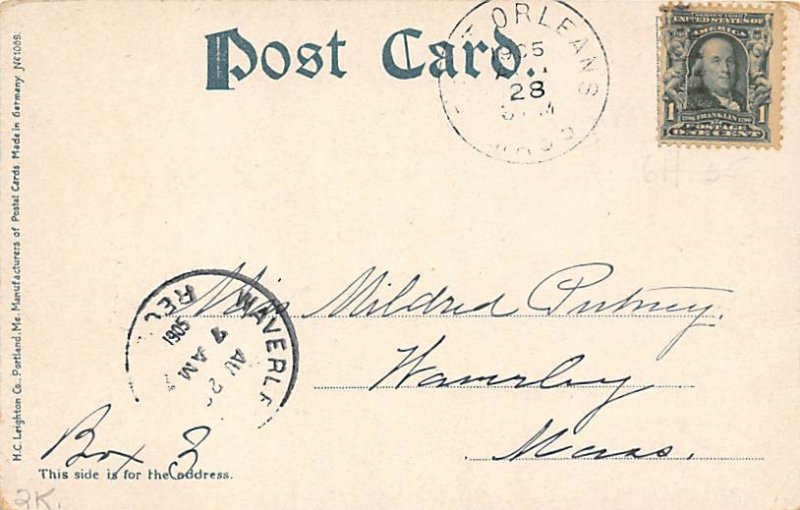 Post Card.
ORLEANS
28
MASS
SERIES 1902
UNITED STATES OF AMERICA
1 FRANKLIN 1
POSTAGE
ONE CENT
H.C. Leighton Co., Portland, Me. Manufacturers of Postal Cards Made in Germany № 1089.
WAVERLE
REC
1905
7 AM
AU 2
Miss Mildred Putney.
Waverley
Mass.
Box 3
This side is for the address.
2K.